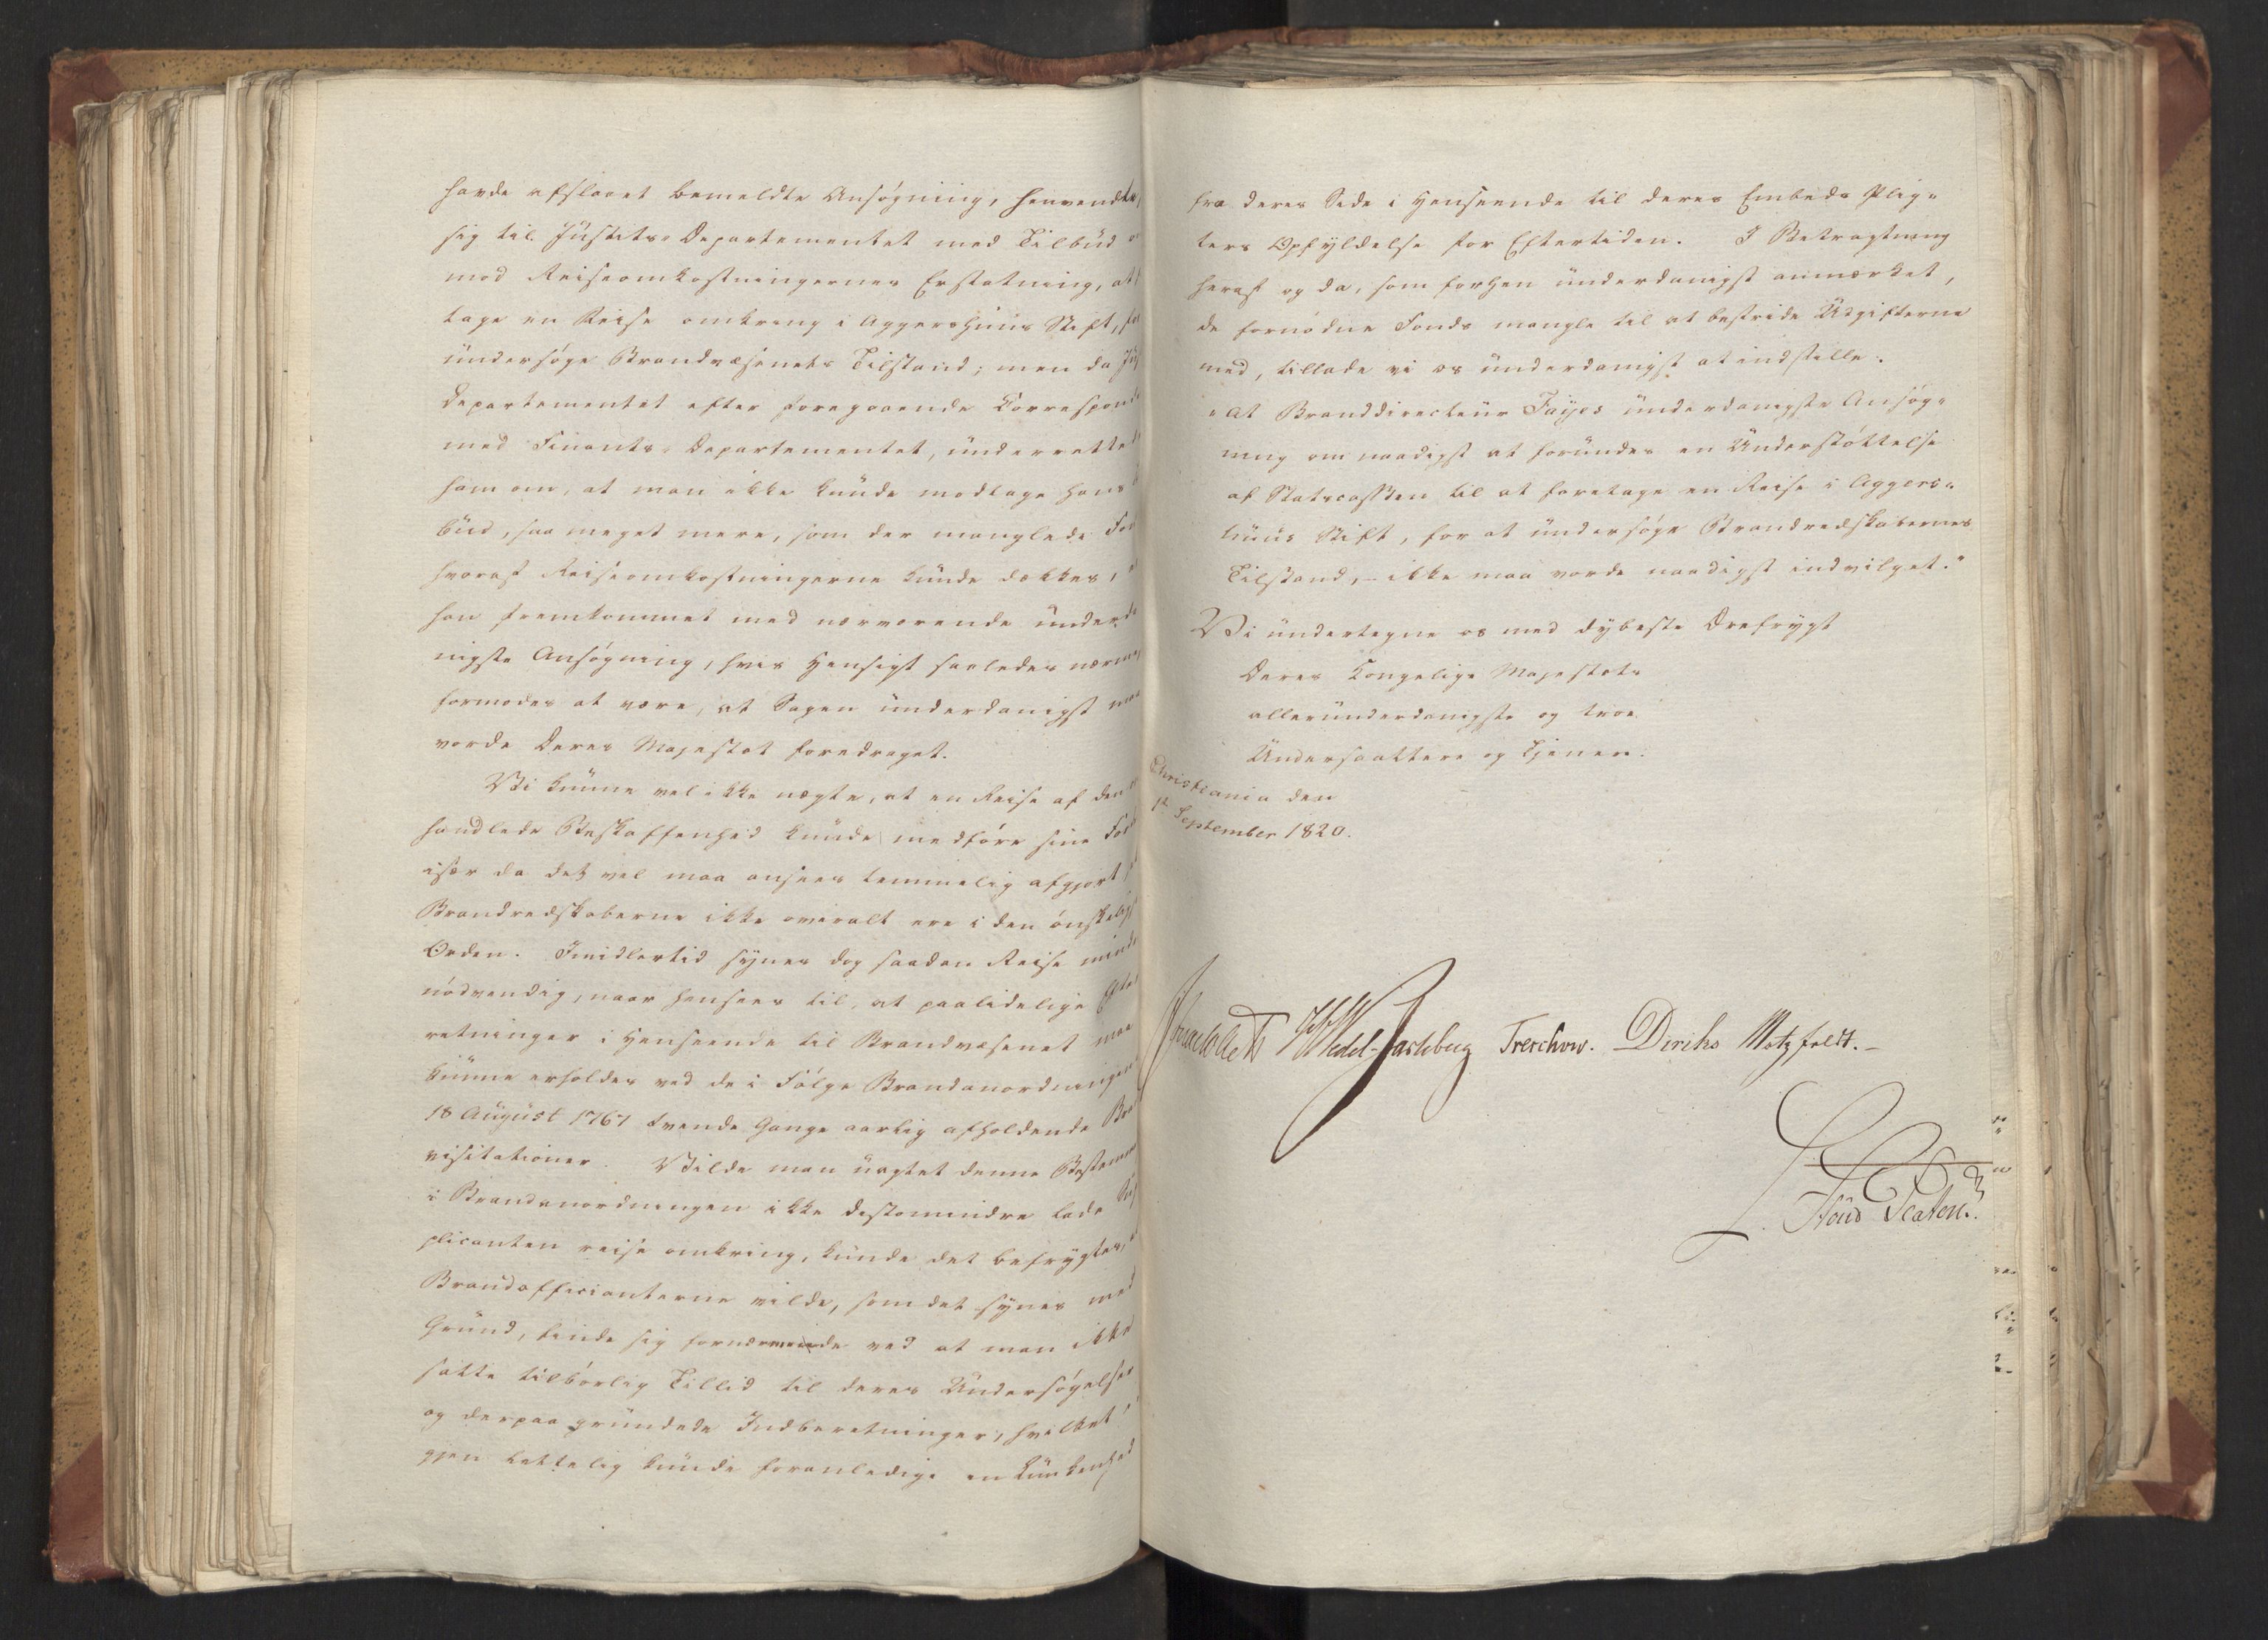 havde afslaaet bemeldte Ansøgning, henvendte
sig til Justits-Departementet med Tilbud
mod Reiseomkostningernes Erstatning, at
tage en Reise omkring i Aggershuus Stift,
undersøge Brandvæsenets Tilstand; men da
Departementet efter foregaaende Correspond
med Finants-Departementet, underrette
ham om, at man ikke kunde modtage hans
bud, saa meget mere, som der manglede
hvoraf Reiseomkostningerne kunde dækkes,
han fremkommet med nærværende underd
nigste Ansøgning, hvis Hensigt saaledes nærm
formodes at være, at Sagen underdanigst maa
vorde Deres Majestæt foredraget.
Vi kunne vel ikke nægte, at en Reise af den
handlede Beskaffenhed kunde medføre sine
især da det vel maa ansees temmelig afgjort
Brandredskaberne ikke overalt ere i den ønskelig
Orden. Imidlertid synes dog saadan Reise mindr
nødvendig, naar hensees til, at paalidelige
retninger i Henseende til Brandvæsenet maa
kunne erholdes ved de i Følge Brandanordningen
18 August 1767 tvende Gange aarlig afholdende
visitationer. Vilde man uagtet denne Bestemm
i Brandanordningen ikke destomindre lade
plicanten reise omkring, kunde det befrygtes,
Brandofficianterne vilde, som det synes med
Grund, finde sig fornærmede ved at man ikke
satte tilbørlig Tillid til deres Undersøgelser
og derpaa grundede Indberetninger, hvilket
gjen lettelig kunde foranledige en Lunkenhed
fra deres Side i Henseende til deres Embeds Plig-
ters Opfyldelse for Eftertiden. I Betragtning
heraf og da, som forhen underdanigst anmærket,
de fornødne Fonds mangle til at bestride Udgifterne
med, tillade vi os underdanigst at indstille:
"At Branddirecteur Fayes underdanigste Ansøg-
ning om naadigst at forundes en Understøttelse
af Statscassen til at foretage en Reise i Aggers-
huus Stift, for at undersøge Brandredskabernes
Tilstand, - ikke maa vorde naadigst indvilget."
Vi undertegne os med dybeste Ærefrygt
Deres Kongelige Majestæts
allerunderdanigste og troe
Undersaattere og Tjenere.
Christiania den
1ste September 1820.
Wedel-Jarlsberg Treschow. Diriks Motzfeldt.